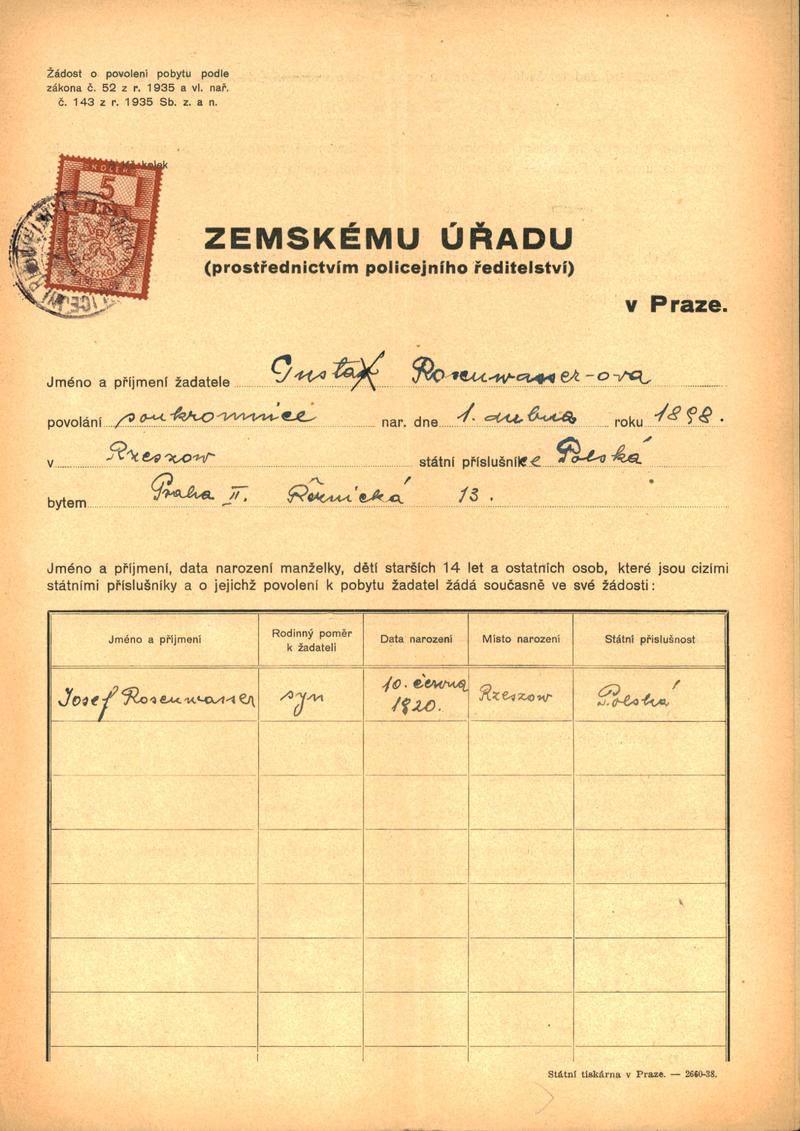 Žádost o povolení pobytu podle
zákona č. 52 z r. 1935 a vl. nař.
č. 143 z r. 1935 Sb. z. a n.
kolek
KOLEK
5
ZEMSKÉMU ÚŘADU
(prostřednictvím policejního ředitelství)
v Praze.
Jméno a příjmení žadatele Gusta Rosenwasser-ova
povolání soukromnice nar. dne 1. dubna roku 1898.
v Rzeszow státní příslušnice Polská
bytem Praha II. Řeznická 13.
Jméno a příjmení, data narození manželky, dětí starších 14 let a ostatních osob, které jsou cizími
státními příslušníky a o jejichž povolení k pobytu žadatel žádá současně ve své žádosti:
Jméno a příjmení Rodinný poměr k žadateli Data narození Místo narození Státní příslušnost
Josef Rosenwasser syn 10. června 1920. Rzeszow Polská
Státní tiskárna v Praze. — 2660-38.